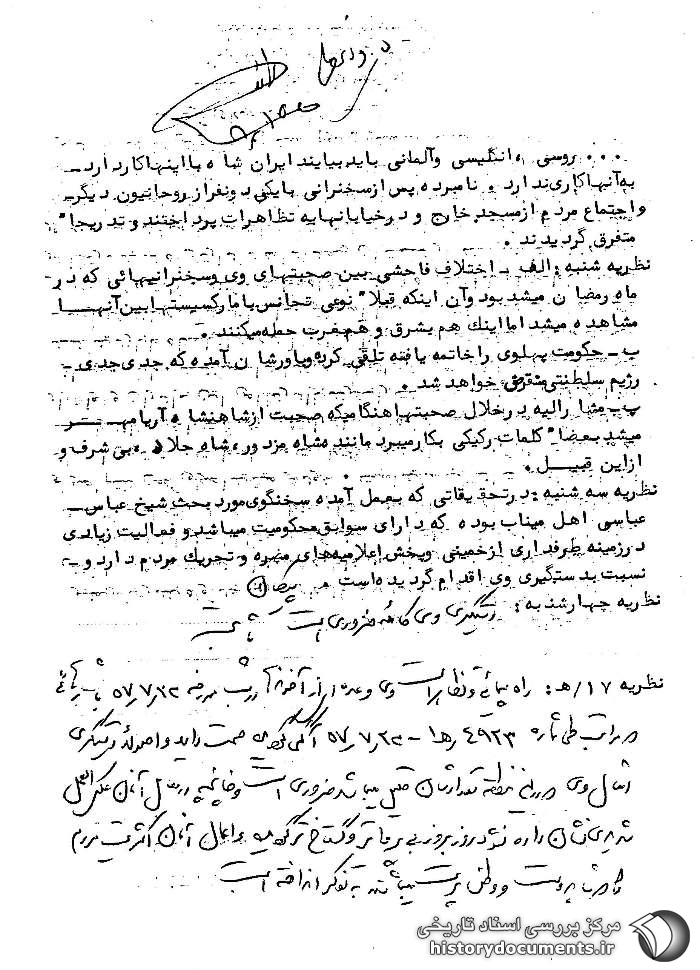 ... روسی ، انگلیسی وآلمانی باید بیایند ایران شاه با اینها کار دارد ـ
به آنها کاری ندارد و نامبرده پس از سخنرانی با یکی دو نفر از روحانیون دیگر ـ
و اجتماع مردم از مسجد خارج و در خیابانها به تظاهرات پرداختند و تدریجا"
متفرق گردیدند .
نظریه شنبه : الف ـ اختلاف فاحشی بین صحبتهای وی وسخنرانیهائی که در
ماه رمضان میشد بود وآن اینکه قبلا" نوعی تجانس با مارکسیستها بین آنهـا
مشاهده میشد اما اینك هم بشرق و هم غرب حمله میکنند .
ب ـ حکومت پهلوی را خاتمه یافته تلقی کرده و یاورشان آمده که جدی جدی ـ
رژیم سلطنتی منقرض خواهد شد .
پ ـ مشارالیه در خلال صحبتها هنگامیکه صحبت از شاهنشاه آریامهـــر
میشد بعضا" کلمات رکیکی بکار میبرد مانند شاه مزدور ، شاه جلاد ، بی شرف و
از این قبیـــل .
نظریه سه شنبه : در تحقیقاتی که بعمل آمده سخنگوی مورد بحث شیخ عباس ـ
عباسی اهل میناب بوده که دارای سوابق محکومیت میباشد و فعالیت زیادی
در زمینه طرفداری از خمینی وپخش اعلامیه های مضره و تحریك مردم دارد و ـ
نسبت بدستگیری وی اقدام گردیده است
نظریه چهارشنبه : دستگیری وی کاملا ضروری است
نظریه ۱۷/ه‍ : راه پیمائی و تظاهرات وی و عده ای از آخوندها در شب مورخه ۵۷٫۷٫۲۲
مراتب طی شماره ۴۹۲۳/ه‍۱ ـ ۵۷٫۷٫۲۲ آگهی گردیده صحت دارد و اصولا دستگیری
امثال وی در این منطقه تعدادشان قلیل میباشد ضروری است و چنانچه در مقابل آنان عکس العمل
شدیدی نشان داده نشود روز بروز بی پرواتر و گستاخ تر گردیده و اعمال آنان اکثریت مردم
که شاهدوست و وطن پرست میباشند به تفکر انداخته است
مرکز بررسی اسناد تاریخی
historydocuments.ir